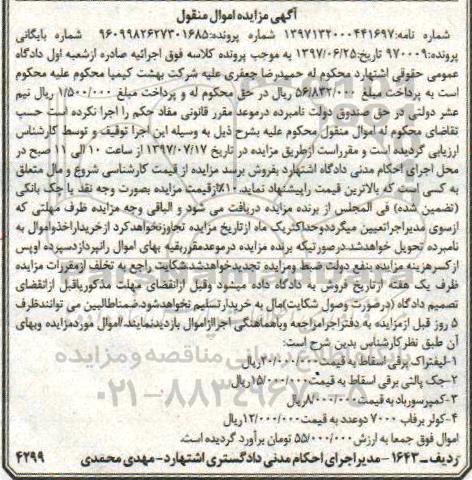 آگهی مزایده اموال منقول
شماره نامه:۱۳۹۷۱۳۲۰۰۰۴۴۱۶۹۷ شماره پرونده:۹۶۰۹۹۸۲۶۲۷۳۰۱۶۸۵ شماره بایگانی
پرونده:۹۷۰۰۰۹ تاریخ:۱۳۹۷/۰۶/۲۵ به موجب پرونده کلاسه فوق اجرائیه صادره ازشعبه اول دادگاه
عمومی حقوقی اشتهارد محکوم له حمیدرضا جعفری علیه شرکت بهشت کیمیا محکوم علیه محکوم
است به پرداخت مبلغ ۵۶/۸۳۲/۰۰۰ ریال در حق محکوم له و پرداخت مبلغ ۱/۵۰۰/۰۰۰ ریال نیم
عشر دولتی در حق صندوق دولت نامبرده درموعد مقرر قانونی مفاد حکم را اجرا نکرده است حسب
تقاضای محکوم له اموال منقول محکوم علیه بشرح ذیل به وسیله این اجرا توقیف و توسط کارشناس
ارزیابی گردیده است و مقرراست ازطریق مزایده در تاریخ ۱۳۹۷/۰۷/۱۷ از ساعت ۱۰ الی ۱۱ صبح در
محل اجرای احکام مدنی دادگاه اشتهارد بفروش برسد مزایده از قیمت کارشناسی شروع و مال متعلق
به کسی است که بالاترین قیمت راپیشنهاد نماید.۱۰٪ازقیمت مزایده بصورت وجه نقد یا چک بانکی
(تضمین شده) فی المجلس از برنده مزایده دریافت می شود و الباقی وجه مزایده ظرف مهلتی که
ازسوی مدیراجراتعیین میگرددوحداکثریک ماه ازتاریخ مزایده تجاوزنخواهدکرد ازخریداراخذواموال به
نامبرده تحویل خواهدشد.درصورتیکه برنده مزایده درموعدمقرربقیه بهای اموال رانپردازدسپرده اوپس
ازکسرهزینه مزایده بنفع دولت ضبط ومزایده تجدیدخواهدشد.شکایت راجع به تخلف ازمقررات مزایده
ظرف یک هفته ازتاریخ فروش به دادگاه داده میشود وقبل ازانقضای مهلت مذکوریاقبل ازانقضای
تصمیم دادگاه (درصورت وصول شکایت)مال به خریدارتسلیم نخواهدشود.ضمناطالبین می توانندظرف
۵ روز قبل ازمزایده به دفتراجرامراجعه وباهماهنگی اجراازاموال بازدیدنمایند.اموال موردمزایده وبهای
آن طبق نظرکارشناس بدین شرح است:
۱-لیفتراک برقی اسقاط به قیمت ۲۰/۰۰۰/۰۰۰ریال
۲-جک پالتی برقی اسقاط به قیمت۱۵/۰۰۰/۰۰۰ریال
۳-کمپرسورباد به قیمت۸/۰۰۰/۰۰۰ریال
۴-کولر برفاب ۷۰۰۰ دوعدد به قیمت۱۲/۰۰۰/۰۰۰ریال
اموال فوق جمعا به ارزش ۵۵/۰۰۰/۰۰۰ تومان برآورد گردیده است.
ردیف ـ ۱۶۴۳ - مدیراجرای احکام مدنی دادگستری اشتهارد- مهدی محمدی ۴۲۹۹